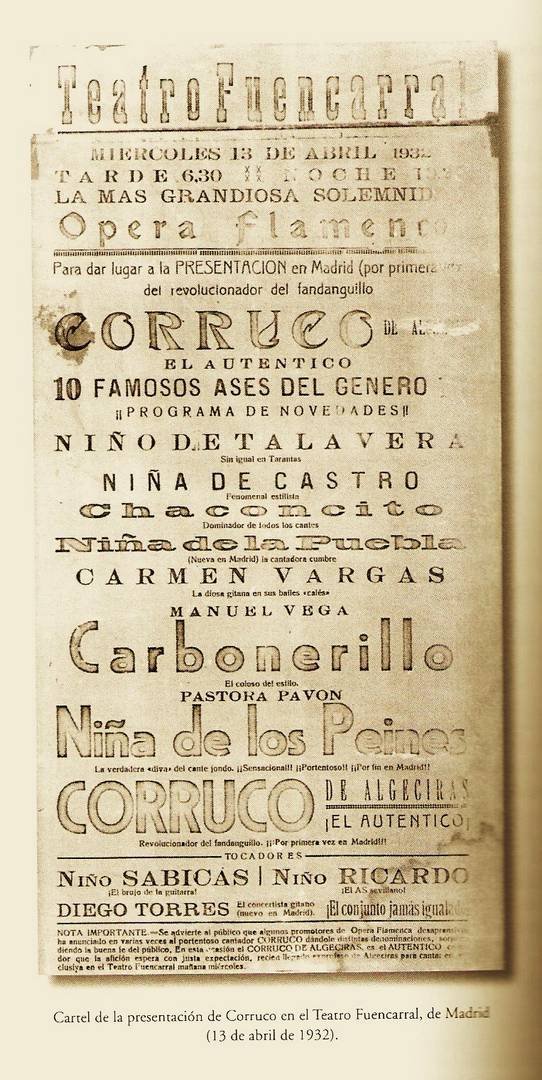 Teatro Fuencarral
MIERCOLES 13 DE ABRIL 193
TARDE 6.30 NOCHE
LA MAS GRANDIOSA SOLEMNID
Opera flamenco
Para dar lugar a la PRESENTACION en Madrid (por primera vez
del revolucionador del fandanguillo
CORRUCO DE
EL AUTENTICO
10 FAMOSOS ASES DEL GENERO
¡¡PROGRAMA DE NOVEDADES!!
NIÑO DE TALAVERA
Sin igual en Tarantas
NIÑA DE CASTRO
Fenomenal estilista
Chaconcito
Dominador de todos los cantes
Niña de la Puebla
(Nueva en Madrid) la cantadora cumbre
CARMEN VARGAS
La diosa gitana en sus bailes «calés»
MANUEL VEGA
Carbonerillo
El coloso del estilo.
PASTORA PAVON
Niña de los Peines
La verdadera «diva» del cante jondo. ¡¡Sensacional!! ¡¡Portentoso!! ¡¡Por fin en Madrid!!
CORRUCO DE ALGECIRAS
¡EL AUTENTICO!
Revolucionador del fandanguillo. ¡¡Por primera vez en Madrid!!!
TOCADORES
NIÑO SABICAS | NIÑO RICARDO
¡El brujo de la guitarra! ¡El AS sevillano!
DIEGO TORRES El concertista gitano (nuevo en Madrid). ¡El conjunto jamás igualado
NOTA IMPORTANTE.—Se advierte al público que algunos promotores de Opera Flamenca
ha anunciado en varias veces al portentoso cantador CORRUCO dándole distintas denominaciones,
diendo la buena fe del público. En esta ocasión el CORRUCO DE ALGECIRAS, es el AUTENTICO
dor que la afición espera con justa expectación, recien llegado exprofeso de Algeciras para cantar
clusiva en el Teatro Fuencarral mañana miércoles.
Cartel de la presentación de Corruco en el Teatro Fuencarral, de Madrid
(13 de abril de 1932).